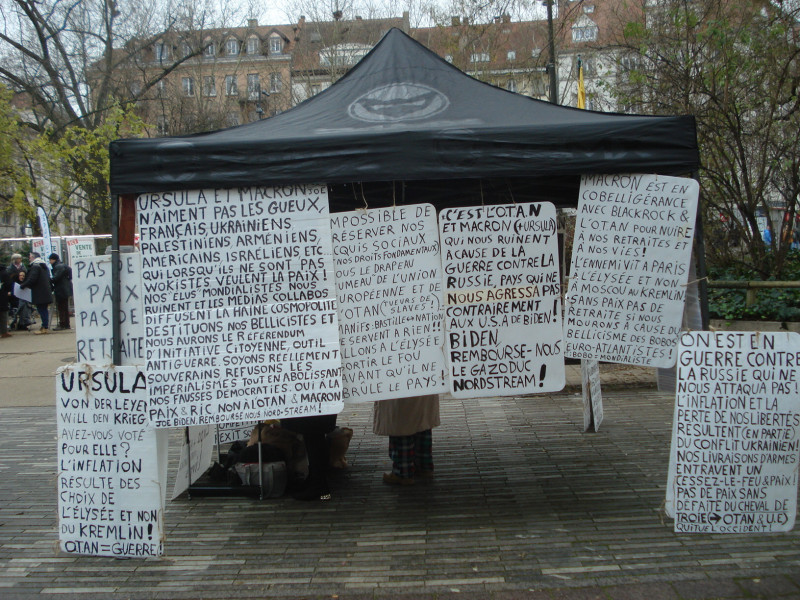 VENTE
PAS DE
PAIX
PAS DE
RETRAITE
URSULA ET MACRON JOE
N'AIMENT PAS LES GUEUX,
FRANÇAIS, UKRAINIENS
PALESTINIENS, ARMÉNIENS,
AMÉRICAINS, ISRAÉLIENS ETC
QUI LORSQU'ILS NE SONT PAS
WOKISTES VEULENT LA PAIX!
NOS ÉLUS MONDIALISTES NOUS
RUINENT ET LES MEDIAS COLLABOS
DIFFUSENT LA HAINE COSMOPOLITE
DESTITUONS NOS BELLICISTES ET
NOUS AURONS LE RÉFERENDUM
D'INITIATIVE CITOYENNE, OUTIL
ANTIGUERRE. SOYONS RÉELLEMENT
SOUVERAINS, REFUSONS LES
IMPÉRIALISMES TOUT EN ABOLISSANT
NOS FAUSSES DÉMOCRATIES. OUI A LA
PAIX & RIC NON À L'OTAN & MACRON
JOE BIDEN, REMBOURSE NOUS NORD-STREAM!
MPOSSIBLE DE
RÉSERVER NOS
CQUIS SOCIAUX
NOS DROITS FONDAMENTAUX)
OUS LE DRAPEAU
UMEAU DE L'UNION
EUROPÉENNE ET DE
OTAN
MANIFS. BASTILLE=NATION
E SERVENT A RIEN!!
ALLONS A L'ÉLYSÉE
ORTIR LE FOU
AVANT QU'IL NE
BRÛLE LE PAYS
C'EST L'OTAN
ET MACRON (+URSULA)
QUI NOUS RUINENT
A CAUSE DE LA
GUERRE CONTRE LA
RUSSIE, PAYS QUI NE
NOUS AGRESSA PAS
CONTRAIREMENT
AUX U.S.A DE BIDEN!
BIDEN,
REMBOURSE-NOUS
LE GAZODUC
NORDSTREAM!
MACRON EST EN
COBELLIGÉRANCE
AVEC BLACKROCK &
L'OTAN POUR NUIRE
À NOS RETRAITES ET
À NOS VIES!
L'ENNEMI VIT A PARIS
A L'ÉLYSÉE ET NON
À MOSCOU AU KREMLIN
SANS PAIX PAS DE
RETRAITE SI NOUS
MOURONS À CAUSE DU
BELLICISME DES BOBOS
URO-ATLANTISTES!
URSULA
VON DER LEYE
WILL DEN KRIEG
AVEZ-VOUS VOTÉ
POUR ELLE?
L'INFLATION
RÉSULTE DES
CHOIX DE
L'ÉLYSÉE ET NON
DU KREMLIN!
OTAN=GUERRE!
ON EST EN
GUERRE CONTRE
LA RUSSIE QUI NE
NOUS ATTAQUA PAS!
L'INFLATION ET LA
PERTE DE NOS LIBERTÉS
RÉSULTENT (EN PARTIE)
DU CONFLIT UKRAINIEN!
NOS LIVRAISONS D'ARMES
ENTRAVENT UN
CESSEZ-LE-FEU & PAIX!
PAS DE PAIX SANS
DÉFAITE DU CHEVAL DE
TROIE (→ OTAN & U.E)
QUI TUE L'OCCIDENT!